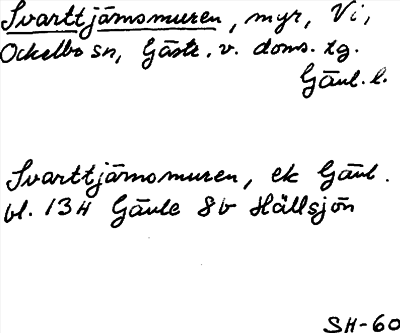 Svarttjärnsmuren, myr, Vi,
Ockelbo sn, Gästr. v. doms. tg.
Gävl. l.
Svarttjärnsmuren, ek Gävl.
bl. 13H Gävle 8b Hällsjön
SH-60